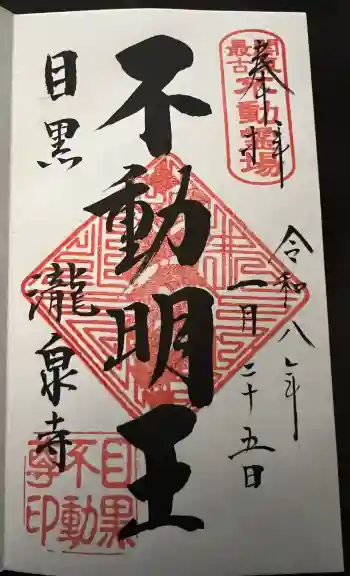 奉拝
関東最古
不動霊場
令和八年
一月二十五日
不動明王
目黒
瀧泉寺
目黒
不動
尊印